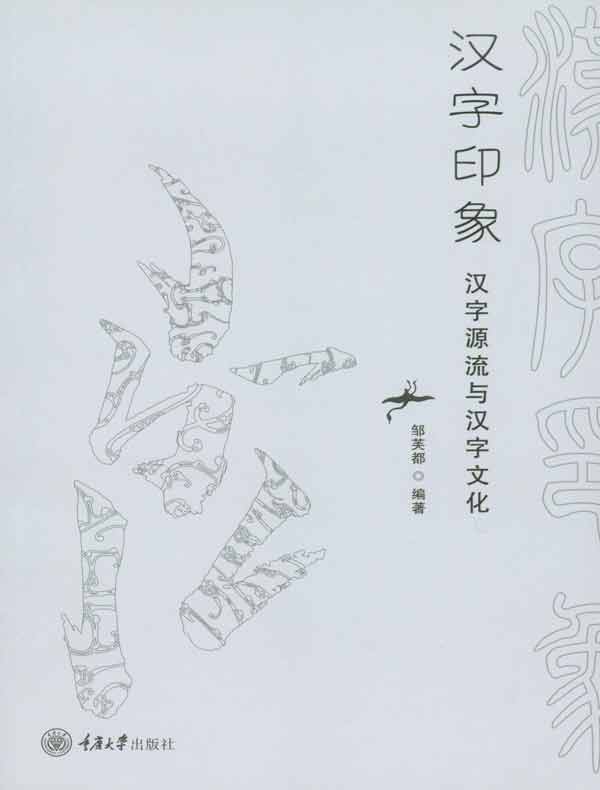 漢字印象
汉字印象
汉字源流与汉字文化
邹芙都◎编著
重庆大学出版社